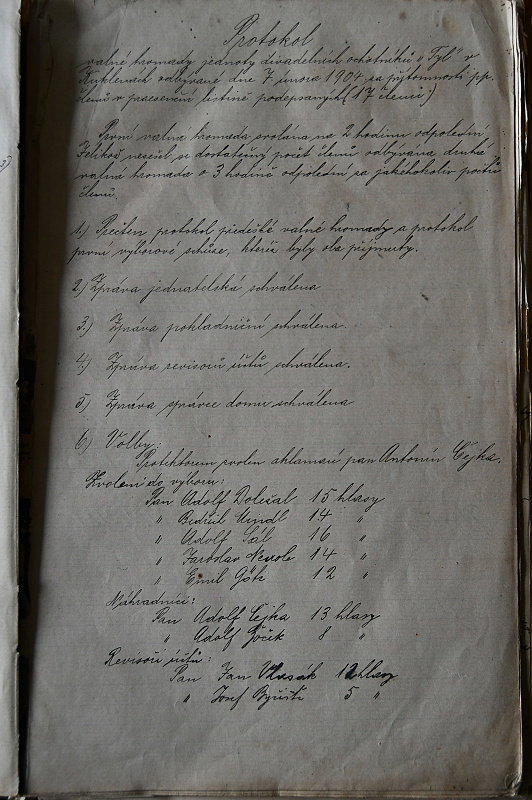 Protokol
valné hromady jednoty divadelních ochotníků „Tyl" v
odbývané dne 7. února 1904 za přítomnosti p.p.
členů v praesenční listině podepsaných (17 členů.)
První valná hromada svolána na 2 hodinu odpolední.
Jelikož nesešel se dostatečný počet členů odbývána druhá
valná hromada o 3 hodině odpolední za jakéhokoliv počtu
členů.
1.) Přečten protokol předešlé valné hromady a protokol
první výborové schůze, kteréž byly oba přijmuty.
2.) Zpráva jednatelská schválena
3.) Zpráva pokladniční schválena.
4.) Zpráva revisorů účtů schválena.
5.) Zpráva správce domu schválena
6.) Volby:
Protektorem zvolen aklamací pan Antonín Čejka.
Zvoleni do výboru:
Pan Adolf Doležal 15 hlasy
„ Bedřich 14 „
„ Adolf Sál 16 „
„ Jaroslav 14 „
„ Emil Götz 12 „
Náhradníci:
Pan Adolf Čejka 13 hlasy
„ Adolf 8 „
Revisoři účtů:
Pan Jan 12 hlasy
„ Josef 5 „